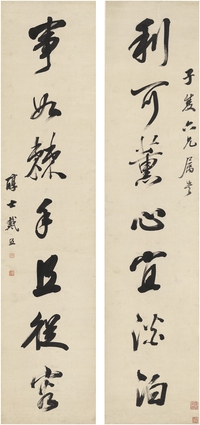 子□六兄属書
利可薰心宜淡泊
事如棘手且從容
醇士戴熙